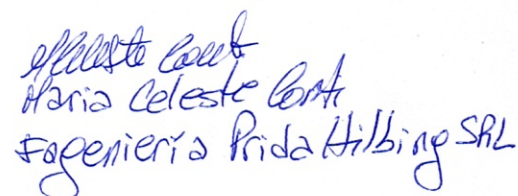 MCeleste Conti
Maria Celeste Conti
Ingeniería Prida Hilbing SRL